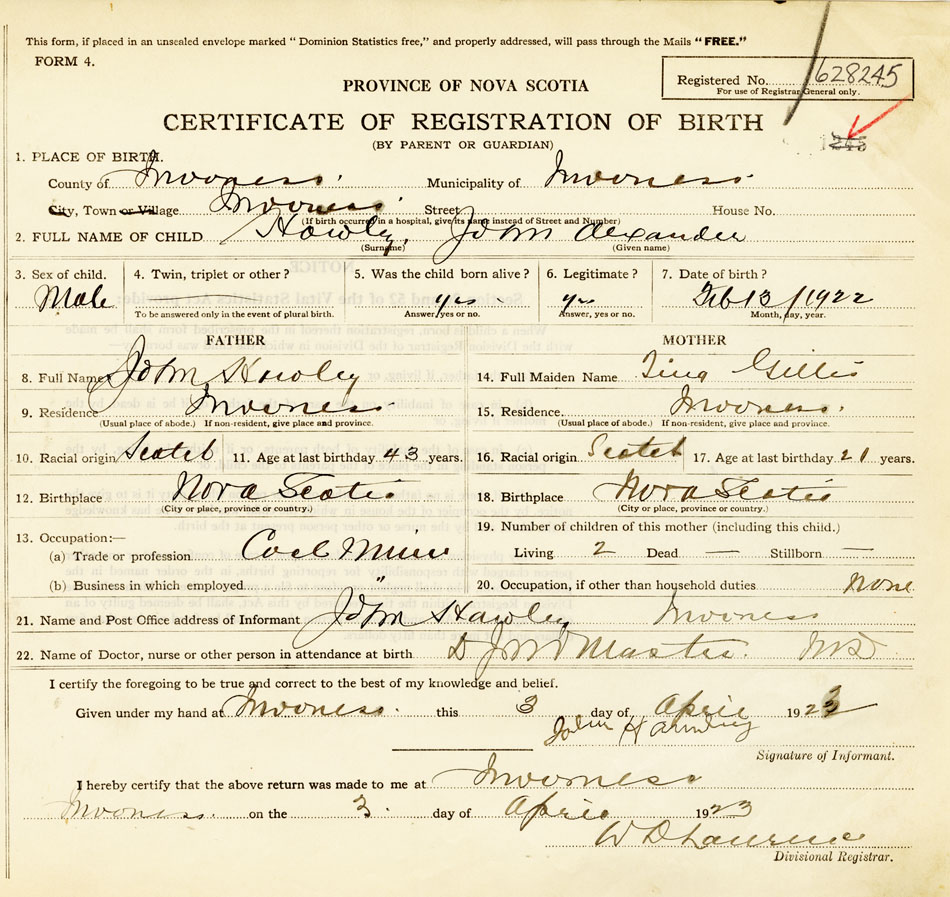 This form, if placed in an unsealed envelope marked “ Dominion Statistics free,” and properly addressed, will pass through the Mails “FREE.”
FORM 4.
Registered No. 628245
For use of Registrar General only.
PROVINCE OF NOVA SCOTIA
CERTIFICATE OF REGISTRATION OF BIRTH
(BY PARENT OR GUARDIAN)
1245
1. PLACE OF BIRTH.
County of Inverness. Municipality of Inverness
City, Town or Village Inverness. Street House No.
(If birth occurred in a hospital, give its name instead of Street and Number)
2. FULL NAME OF CHILD Hawley, John Alexander
(Surname) (Given name)
3. Sex of child. 4. Twin, triplet or other ? 5. Was the child born alive ? 6. Legitimate ? 7. Date of birth ?
Male yes yes Feb 13/1922
To be answered only in the event of plural birth. Answer, yes or no. Answer, yes or no. Month, day, year.
FATHER MOTHER
8. Full Name John Hawley 14. Full Maiden Name Tina Gillis
9. Residence Inverness 15. Residence. Inverness.
(Usual place of abode.) If non-resident, give place and province. (Usual place of abode.) If non-resident, give place and province.
10. Racial origin Scotch 11. Age at last birthday 43 years. 16. Racial origin Scotch 17. Age at last birthday 21 years.
12. Birthplace Nova Scotia 18. Birthplace Nova Scotia
(City or place, province or country.) (City or place, province or country.)
13. Occupation:— 19. Number of children of this mother (including this child.)
(a) Trade or profession Coal Miner Living 2 Dead — Stillborn —
(b) Business in which employed " 20. Occupation, if other than household duties none
21. Name and Post Office address of Informant John Hawley Inverness
22. Name of Doctor, nurse or other person in attendance at birth D M.D
I certify the foregoing to be true and correct to the best of my knowledge and belief.
Given under my hand at Inverness. this 3 day of April 1923
John
Signature of Informant.
I hereby certify that the above return was made to me at Inverness
Inverness. on the 3. day of April 1923
W D Laurence
Divisional Registrar.